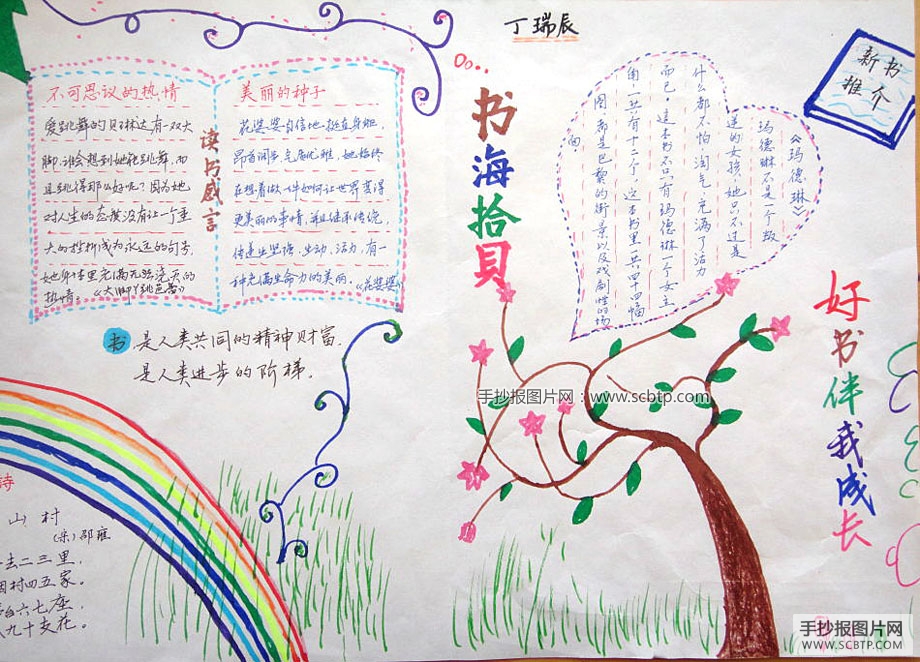 丁瑞辰
新书
推介
不可思议的热情
爱跳舞的贝琳达有一双大
脚,谁会想到她能跳舞,而
且跳得那么好呢?因为她
对人生的态度没有让一个重
大的挫折成为永远的句号,
她身体里充满无穷
热情。《大脚丫跳芭蕾》
读书感言
美丽的种子
花婆婆自信地挺直身躯
气质优雅,她始终
在想着做一件如何让世界变得
更美丽的事情,并且继承传统,
坚强、生动、活力,有一
种充满生命力的美丽。《花婆婆》
书海拾贝
《玛德琳》
玛德琳不是一个叛
逆的女孩,她只不过是
什么都不怕淘气充满了活力
而已。这本书不只有玛德琳一个女主
角一共有十二个,这本书里一共四十四幅
图,都是巴黎的街景以及戏剧性的场
面
好书伴我成长
书是人类共同的精神财富,
是人类进步的阶梯。
手抄报图片网:www.scbtp.com
诗
山村
(宋)邵雍
去二三里,
村四五家。
台六七座,
九十支花。
手抄报图片网
WWW.SCBTP.COM